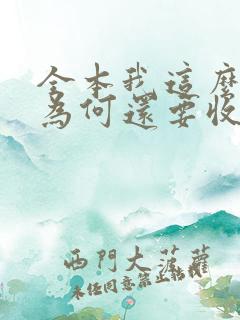 全本我這麼
為何還要收
西門大菠蘿
未任同意禁止轉載